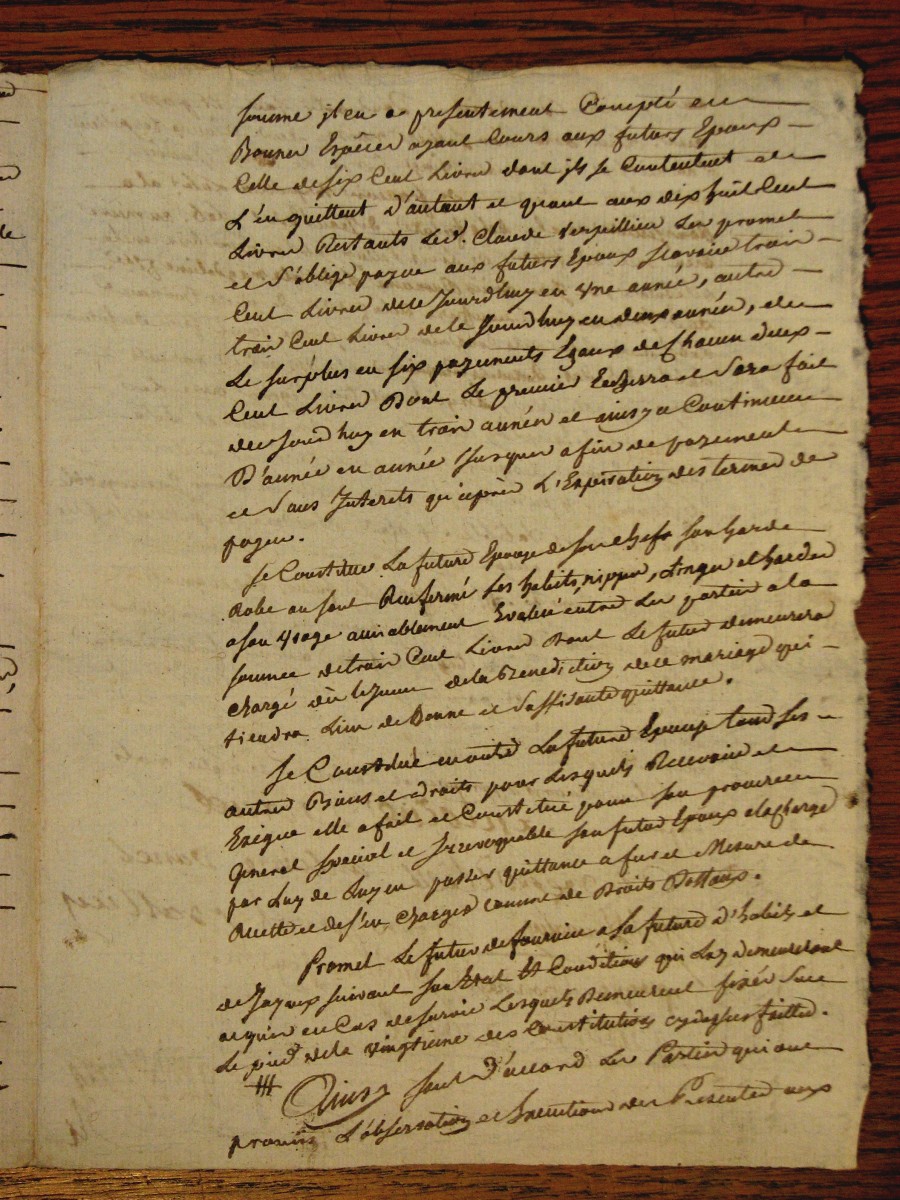 somme jl en a presentement Compté en
Bonnes Espéces ayant Cours aux futurs Epoux
Celle de six Cent Livres dont jls se Contentent et
L'en quittent d'autant et quant aux dix huit Cent
Livres Restants Led. Claude Verpillieu Les promet
et s'oblige payer aux futurs Epoux sçavoir trois
Cent Livres de ce Jourdhuy en Vne année, autre
trois Cent Livres de ce Jourdhuy en deux années, et
Le surplus en six payements Egaux de Chacun deux
Cent Livres Dont Le premier Echerra et Sera fait
de ce Jourdhuy en trois années et ainsy a Continuer
D'année en année Jusques a fin de payement
et Sans Jnterets qu'aprés L'Expiration des termes de
payer.
Se Constitue La future Epouse de son Chef son Garde
Robe ou sont Renfermé ses habits, nippes, Linges et hardes
a son Vsage amiablement Evalué entre Les parties a la
somme de trois Cent Livres Dont Le futur demeurera
Chargé dès le Jour de la Benediction de ce mariage qui
tiendra Lieu de Bonne et Suffisante quittance.
Se Constitué en outre La future Epouse tous ses
autres Biens et droits pour Lesquels Recevoir et
Exiger elle a fait et Constitué pour son procureur
General special et Jrrevocquable son futur Epoux a la charge
par Luy de Luy en passer quittance a fur et Mesure de
Recette et de s'en charger comme de Droits Dottaux.
Promet Le futur de fournir a La future d'habits et
de Joyaux suivant son Etat et Condition qui Luy demeureront
acquis en Cas de survie Lesquels Demeurent fixés Sur
Le pied de la vingtieme des Constitutions cy dessus faittes.
Ainsy sont D'accord Les Parties qui ont
promis L'observation et Execution des Presentes aux